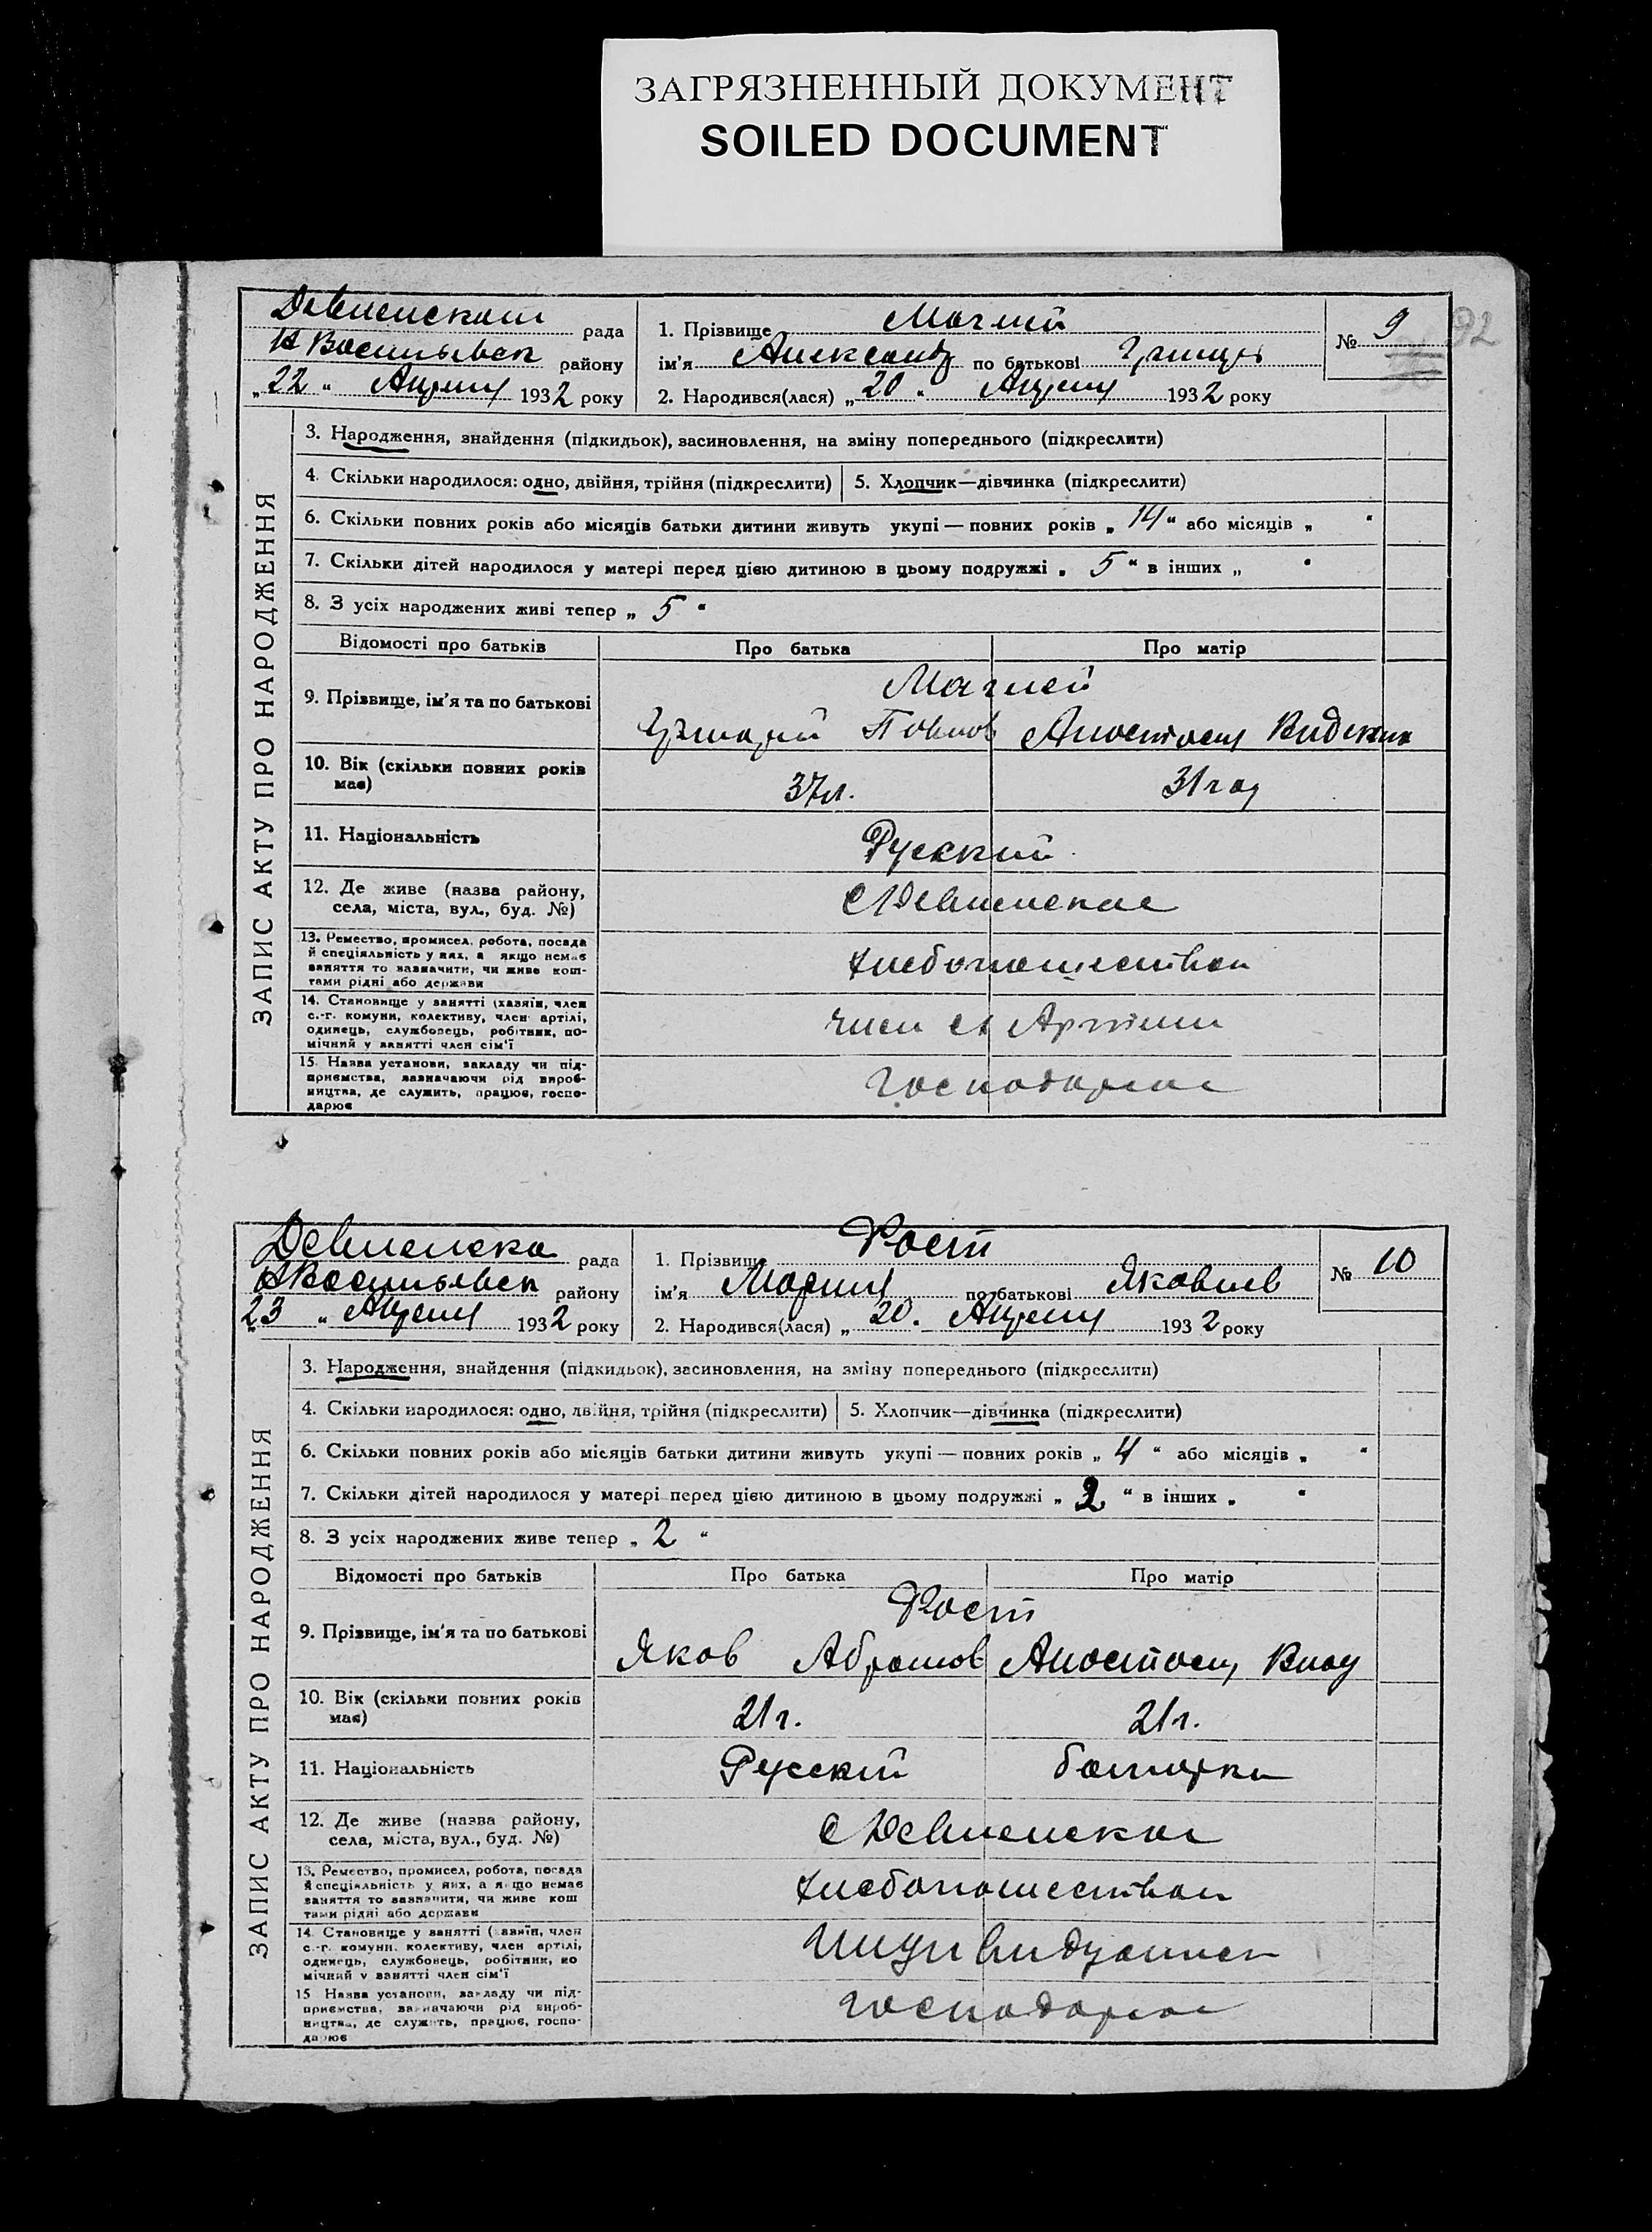 ЗАГРЯЗНЕННЫЙ ДОКУМЕНТ
SOILED DOCUMENT
92
рада
району
„22“ Апреля 1932 року
1. Прізвище
ім'я Александр по батькові
2. Народився(лася) „20“ Апреля 1932 року
№ 9
ЗАПИС АКТУ ПРО НАРОДЖЕННЯ
3. Народження, знайдення (підкидьок), засиновлення, на зміну попереднього (підкреслити)
4. Скільки народилося: одно, двійня, трійня (підкреслити) 5. Хлопчик—дівчинка (підкреслити)
6. Скільки повних років або місяців батьки дитини живуть укупі — повних років „14“ або місяців „ “
7. Скільки дітей народилося у матері перед цією дитиною в цьому подружжі „5“ в інших „ “
8. З усіх народжених живі тепер „5“
Відомості про батьків Про батька Про матір
9. Прізвище, ім'я та по батькові
10. Вік (скільки повних років
має)
37л. 31 год
11. Національність
Русский
12. Де живе (назва району,
села, міста, вул., буд. №)
13. Ремество, промисел, робота, посада
й спеціяльність у них, а якщо немає
заняття то зазначити, чи живе кош-
тами рідні або держави
хлебопашеством
14. Становище у занятті (хазяїн, член
с.-г. комуни, колективу, член артілі,
одинець, службовець, робітник, по-
мічний у занятті член сім'ї
15. Назва установи, закладу чи під-
приємства, зазначаючи рід вироб-
ництва, де служить, працює, госпо-
дарює
рада
району
23 “ Апреля 1932 року
1. Прізвище Рост
ім'я Мария по батькові Яковлев
2. Народився(лася) „20. Апреля 1932 року
№ 10
ЗАПИС АКТУ ПРО НАРОДЖЕННЯ
3. Народження, знайдення (підкидьок), засиновлення, на зміну попереднього (підкреслити)
4. Скільки народилося: одно, двійня, трійня (підкреслити) 5. Хлопчик—дівчинка (підкреслити)
6. Скільки повних років або місяців батьки дитини живуть укупі — повних років „4“ або місяців „ “
7. Скільки дітей народилося у матері перед цією дитиною в цьому подружжі „2“ в інших „ “
8. З усіх народжених живе тепер „2“
Відомості про батьків Про батька Про матір
Рост
9. Прізвище, ім'я та по батькові
Яков Абрамов
10. Вік (скільки повних років
має)
21 г. 21 г.
11. Національність
Русский болгарка
12. Де живе (назва району,
села, міста, вул., буд. №)
13. Ремество, промисел, робота, посада
й спеціяльність у них, а якщо немає
заняття то зазначити, чи живе кош
тами рідні або держави
хлебопашеством
14. Становище у занятті (хазяїн, член
с.-г. комуни, колективу, член артілі,
одинець, службовець, робітник, по
мічний у занятті член сім'ї
15 Назва установи, закладу чи під-
приємства, зазначаючи рід вироб-
ництва, де служить, працює, госпо-
дарює